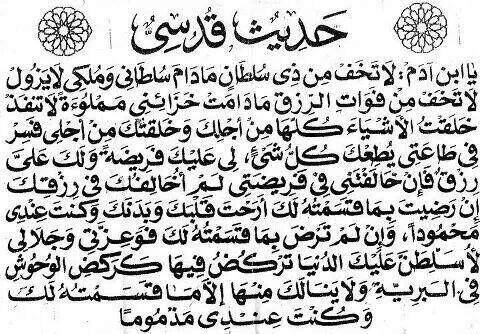 حديث قدسي
يا ابن آدم: لا تخف من ذي سلطان ما دام سلطاني وملكي لا يزول
لا تخف من فوات الرزق ما دامت خزائني مملوءة لا تنفذ
خلقت الأشياء كلها من أجلك وخلقتك من أجلي فسر
في طاعتي يطعك كل شئ، لي عليك فريضة ولك علي
رزق فإن خالفتني في فريضتي لم أخالفك في رزقك
إن رضيت بما قسمته لك أرحت قلبك وبدنك وكنت عندي
محموداً، وإن لم ترض بما قسمته لك فوعزتي وجلالي
لأسلطن عليك الدنيا تركض فيها كركض الوحوش
في البرية ولا ينالك منها إلا ما قسمته لك
وكنت عندي مذموما